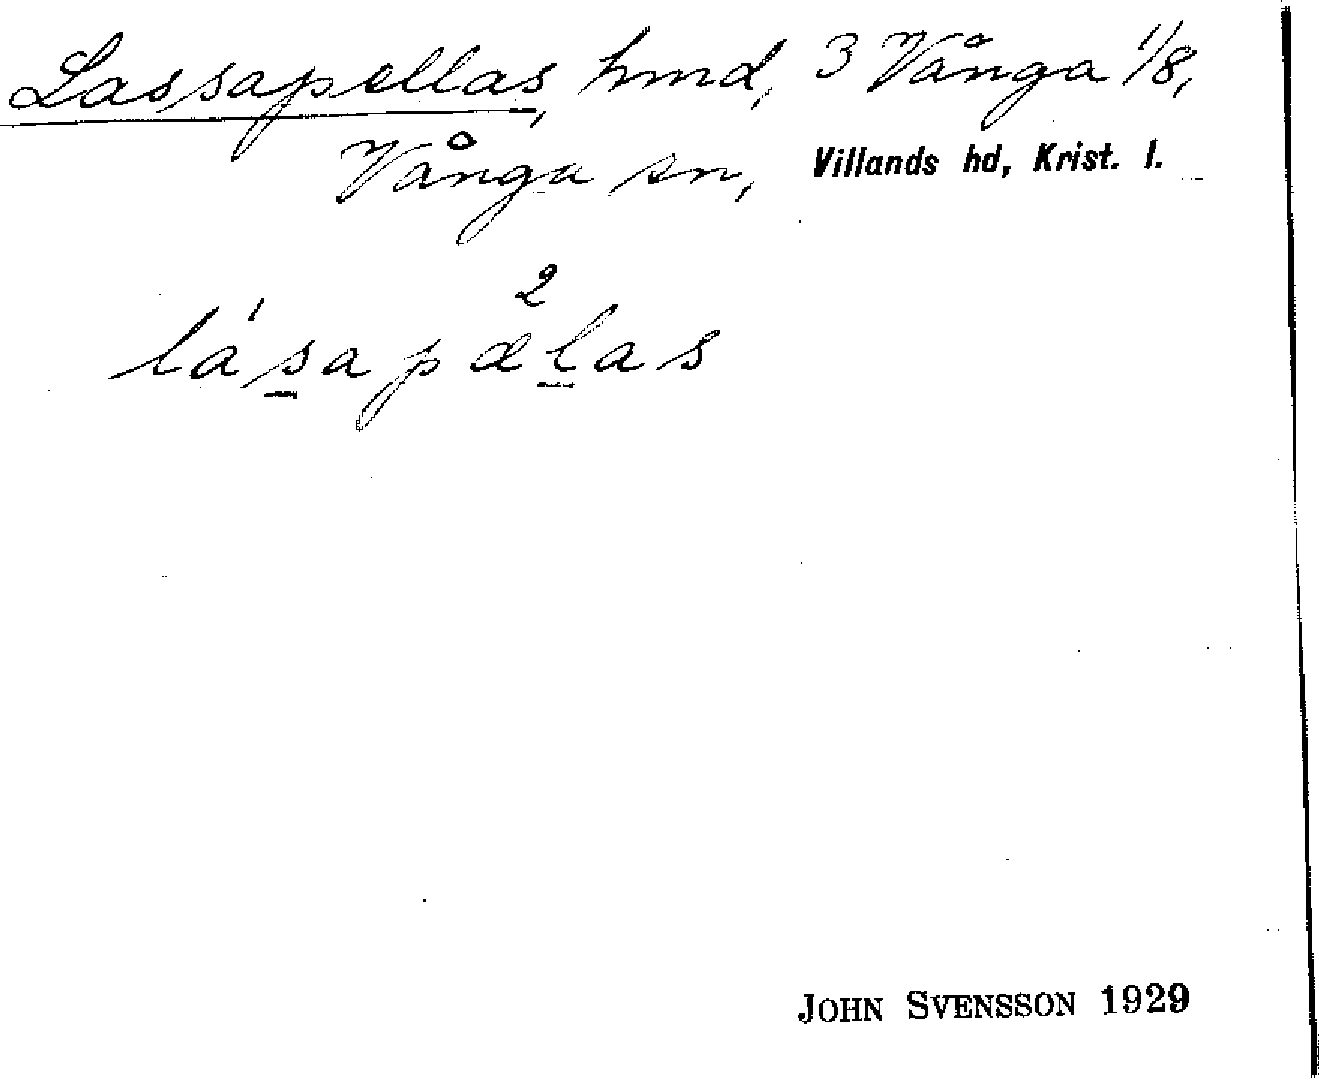 Lassapellas, hmd, 3 Vånga 1/8,
Vånga sn, Villands hd, Krist. l.
lása pæ̀las
JOHN SVENSSON 1929